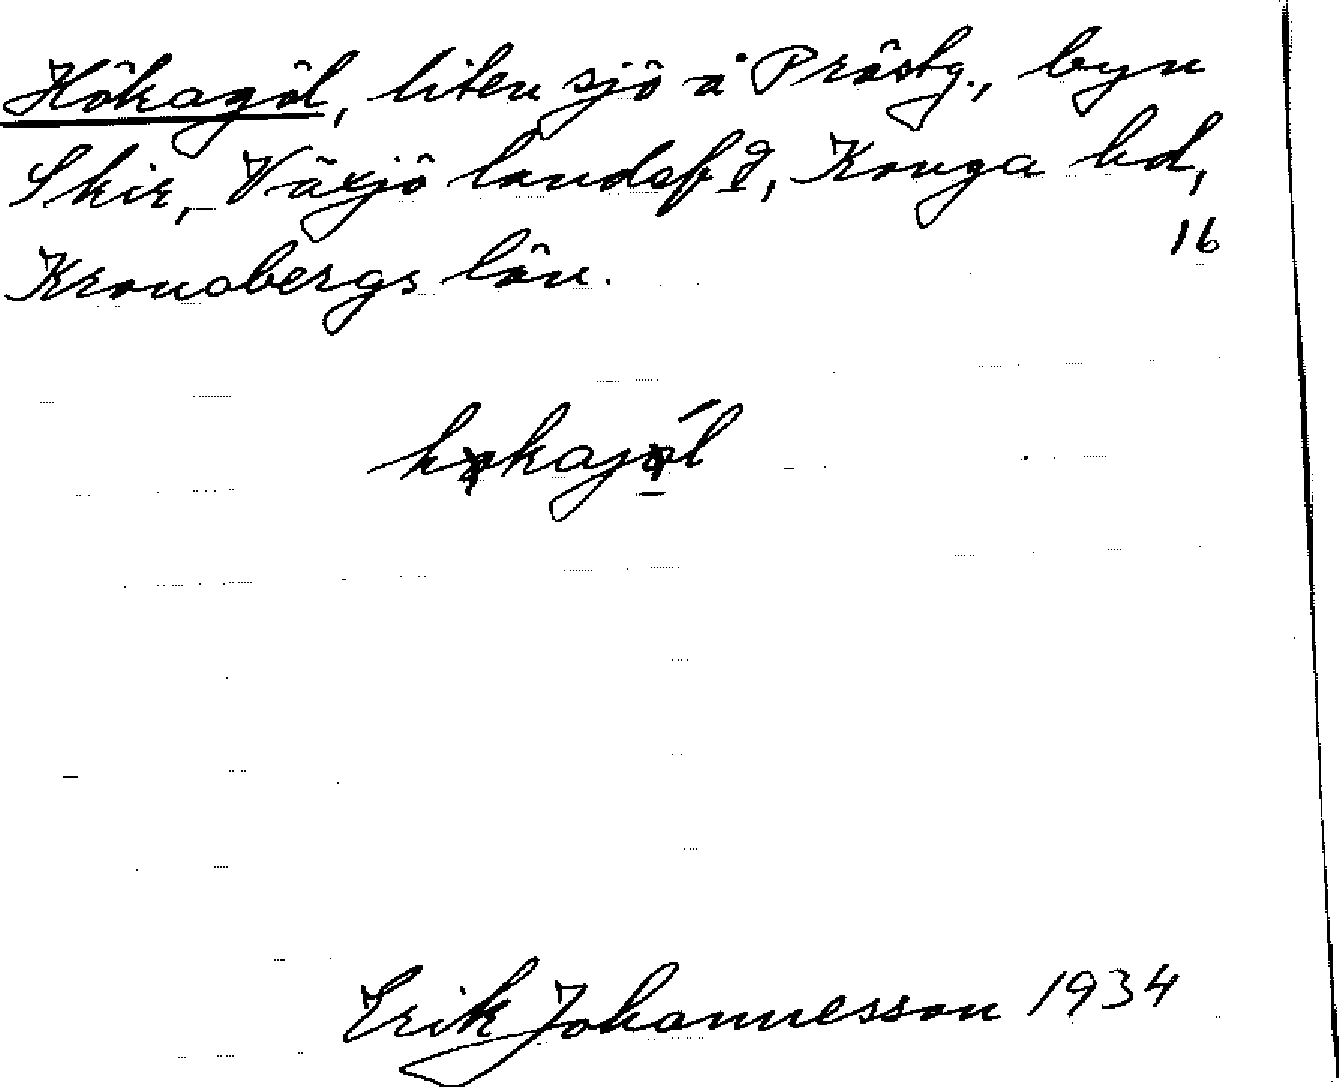 Hökagöl, liten sjö å Prästg., byn
Skir, Växjö landsf d, Konga hd,
16
Kronobergs län.
Erik Johannesson 1934